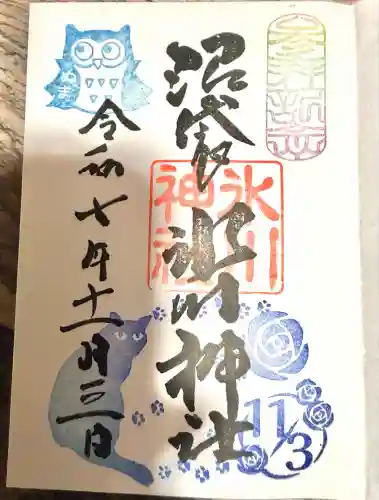 沼袋
氷川神社
氷川
神社
令和七年十一月三日
ぬま
11/3